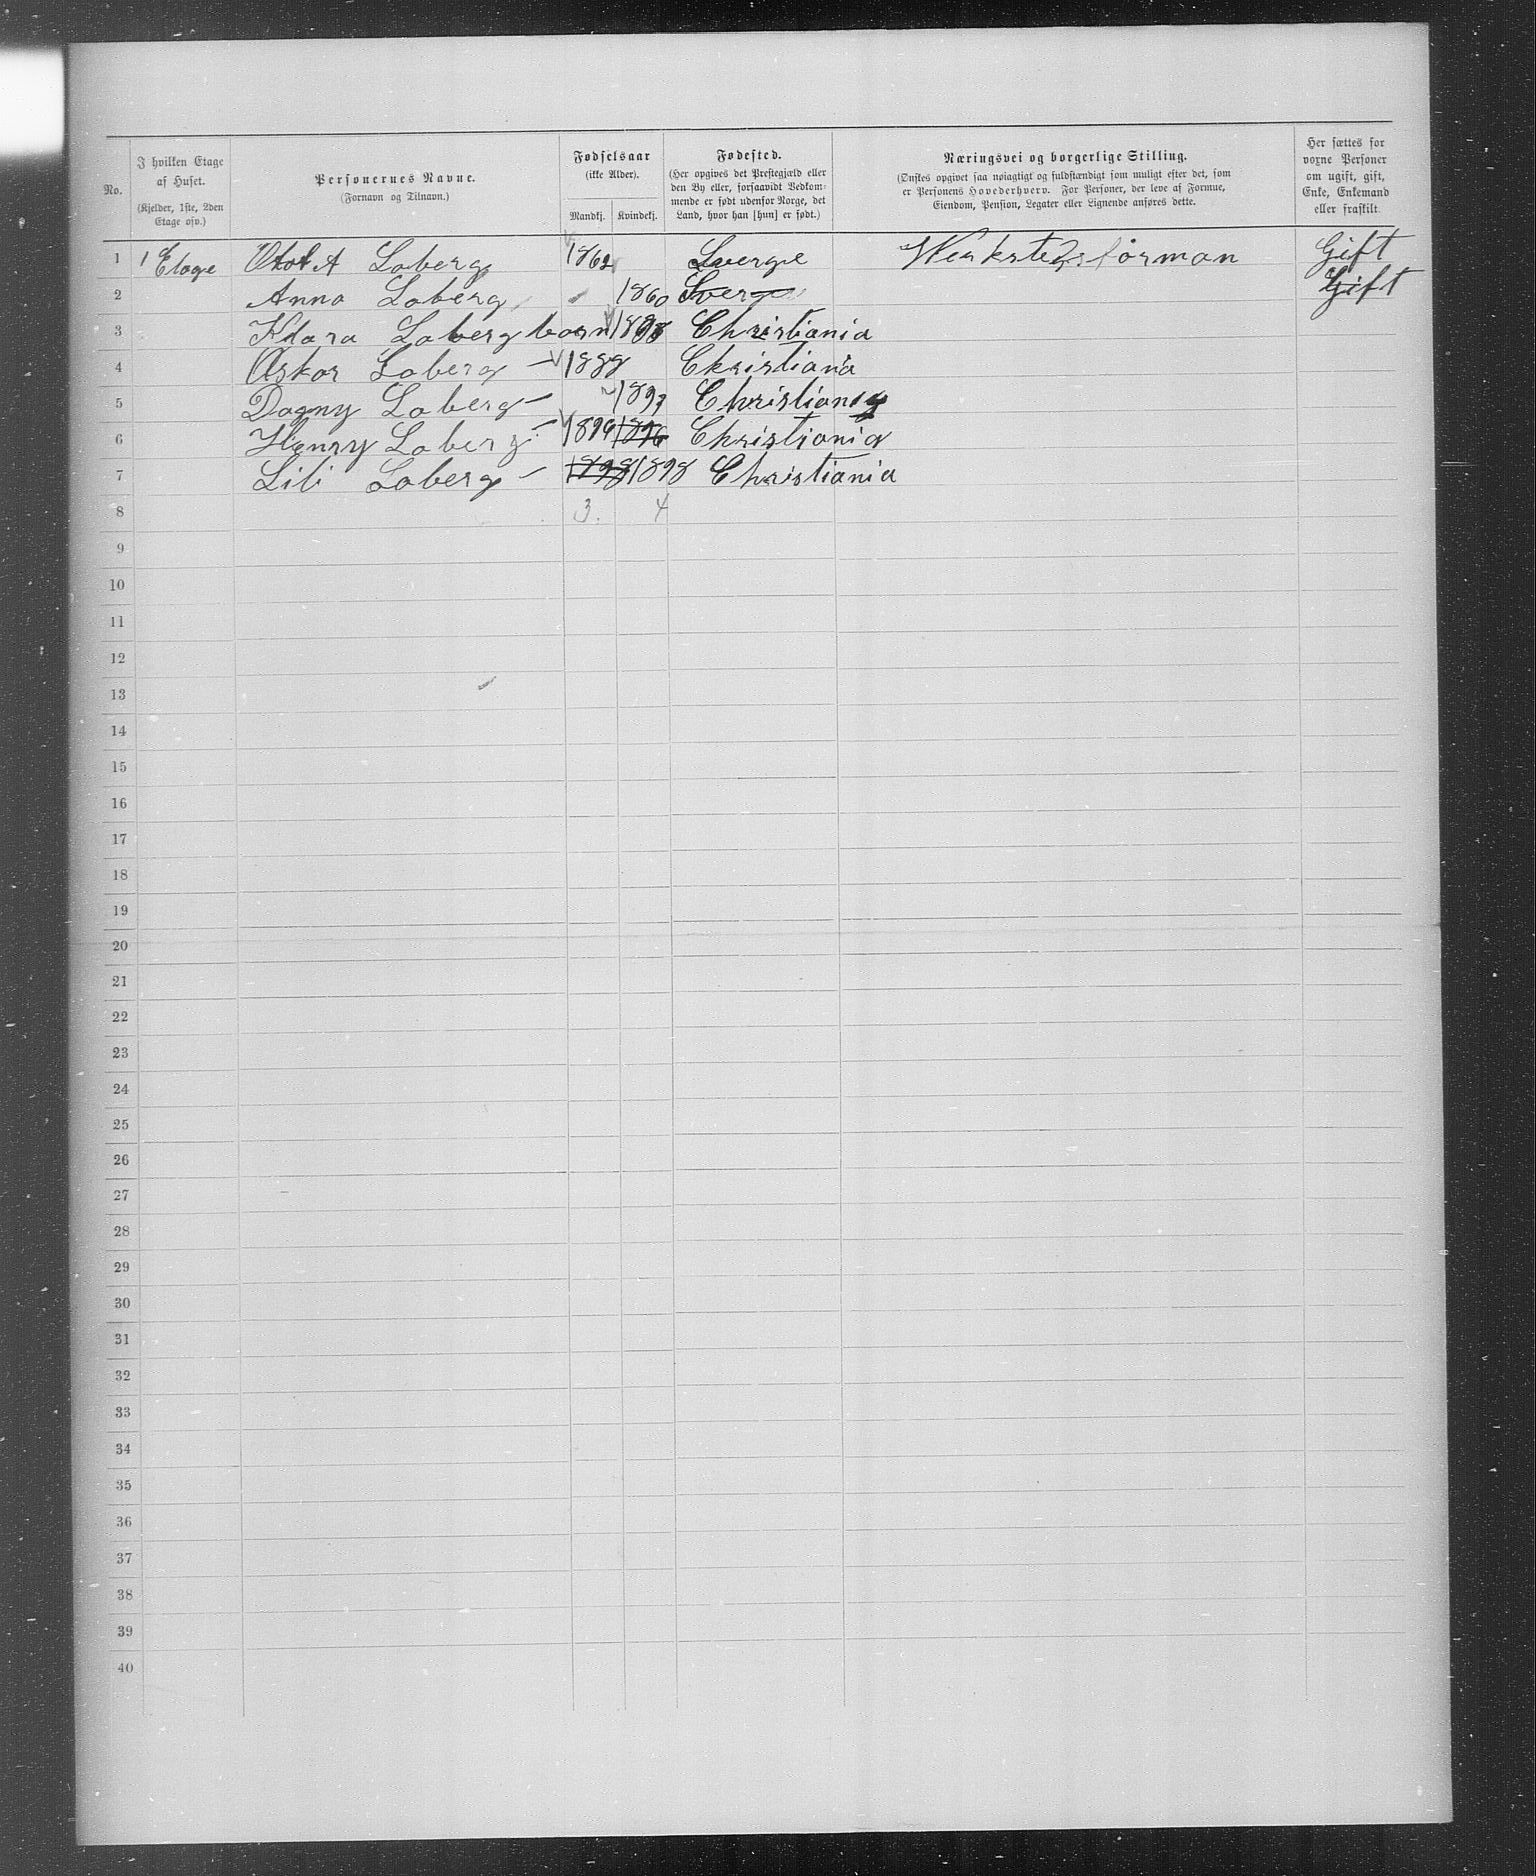 No.
I hvilken Etage af Huset. (Kjelder, 1ste, 2den Etage osv.)
Personernes Navne. (Fornavn og Tilnavn.)
Fødselsaar (ikke Alder). Mandkj. Kvindekj.
Fødested. (Her opgives det Prestegjæld eller den By eller, forsaavidt Vedkommende er født udenfor Norge, det Land, hvor han [hun] er født.)
Næringsvei og borgerlige Stilling. (Ønskes opgivet saa nøiagtigt og fuldstændigt som muligt efter det, som er Personens Hovederhverv. For Personer, der leve af Formue, Eiendom, Pension, Legater eller Lignende anføres dette.
Her sættes for voxne Personer om ugift, gift, Enke, Enkemand eller fraskilt.
1 1 Etage A Loberg 1862 Sverge Werkstedsførman Gift
2 Anna Loberg 1860 Sverge Gift
3 Klara Loberg born Christiania
4 Oskar Loberg — 1888 Christiana
5 Dagny Loberg — 1891 Christiania
6 Henry Loberg — 1896 1896 Christiania
7 Lili Loberg — 1898 1898 Christiania
8 3. 4
9
10
11
12
13
14
15
16
17
18
19
20
21
22
23
24
25
26
27
28
29
30
31
32
33
34
35
36
37
38
39
40